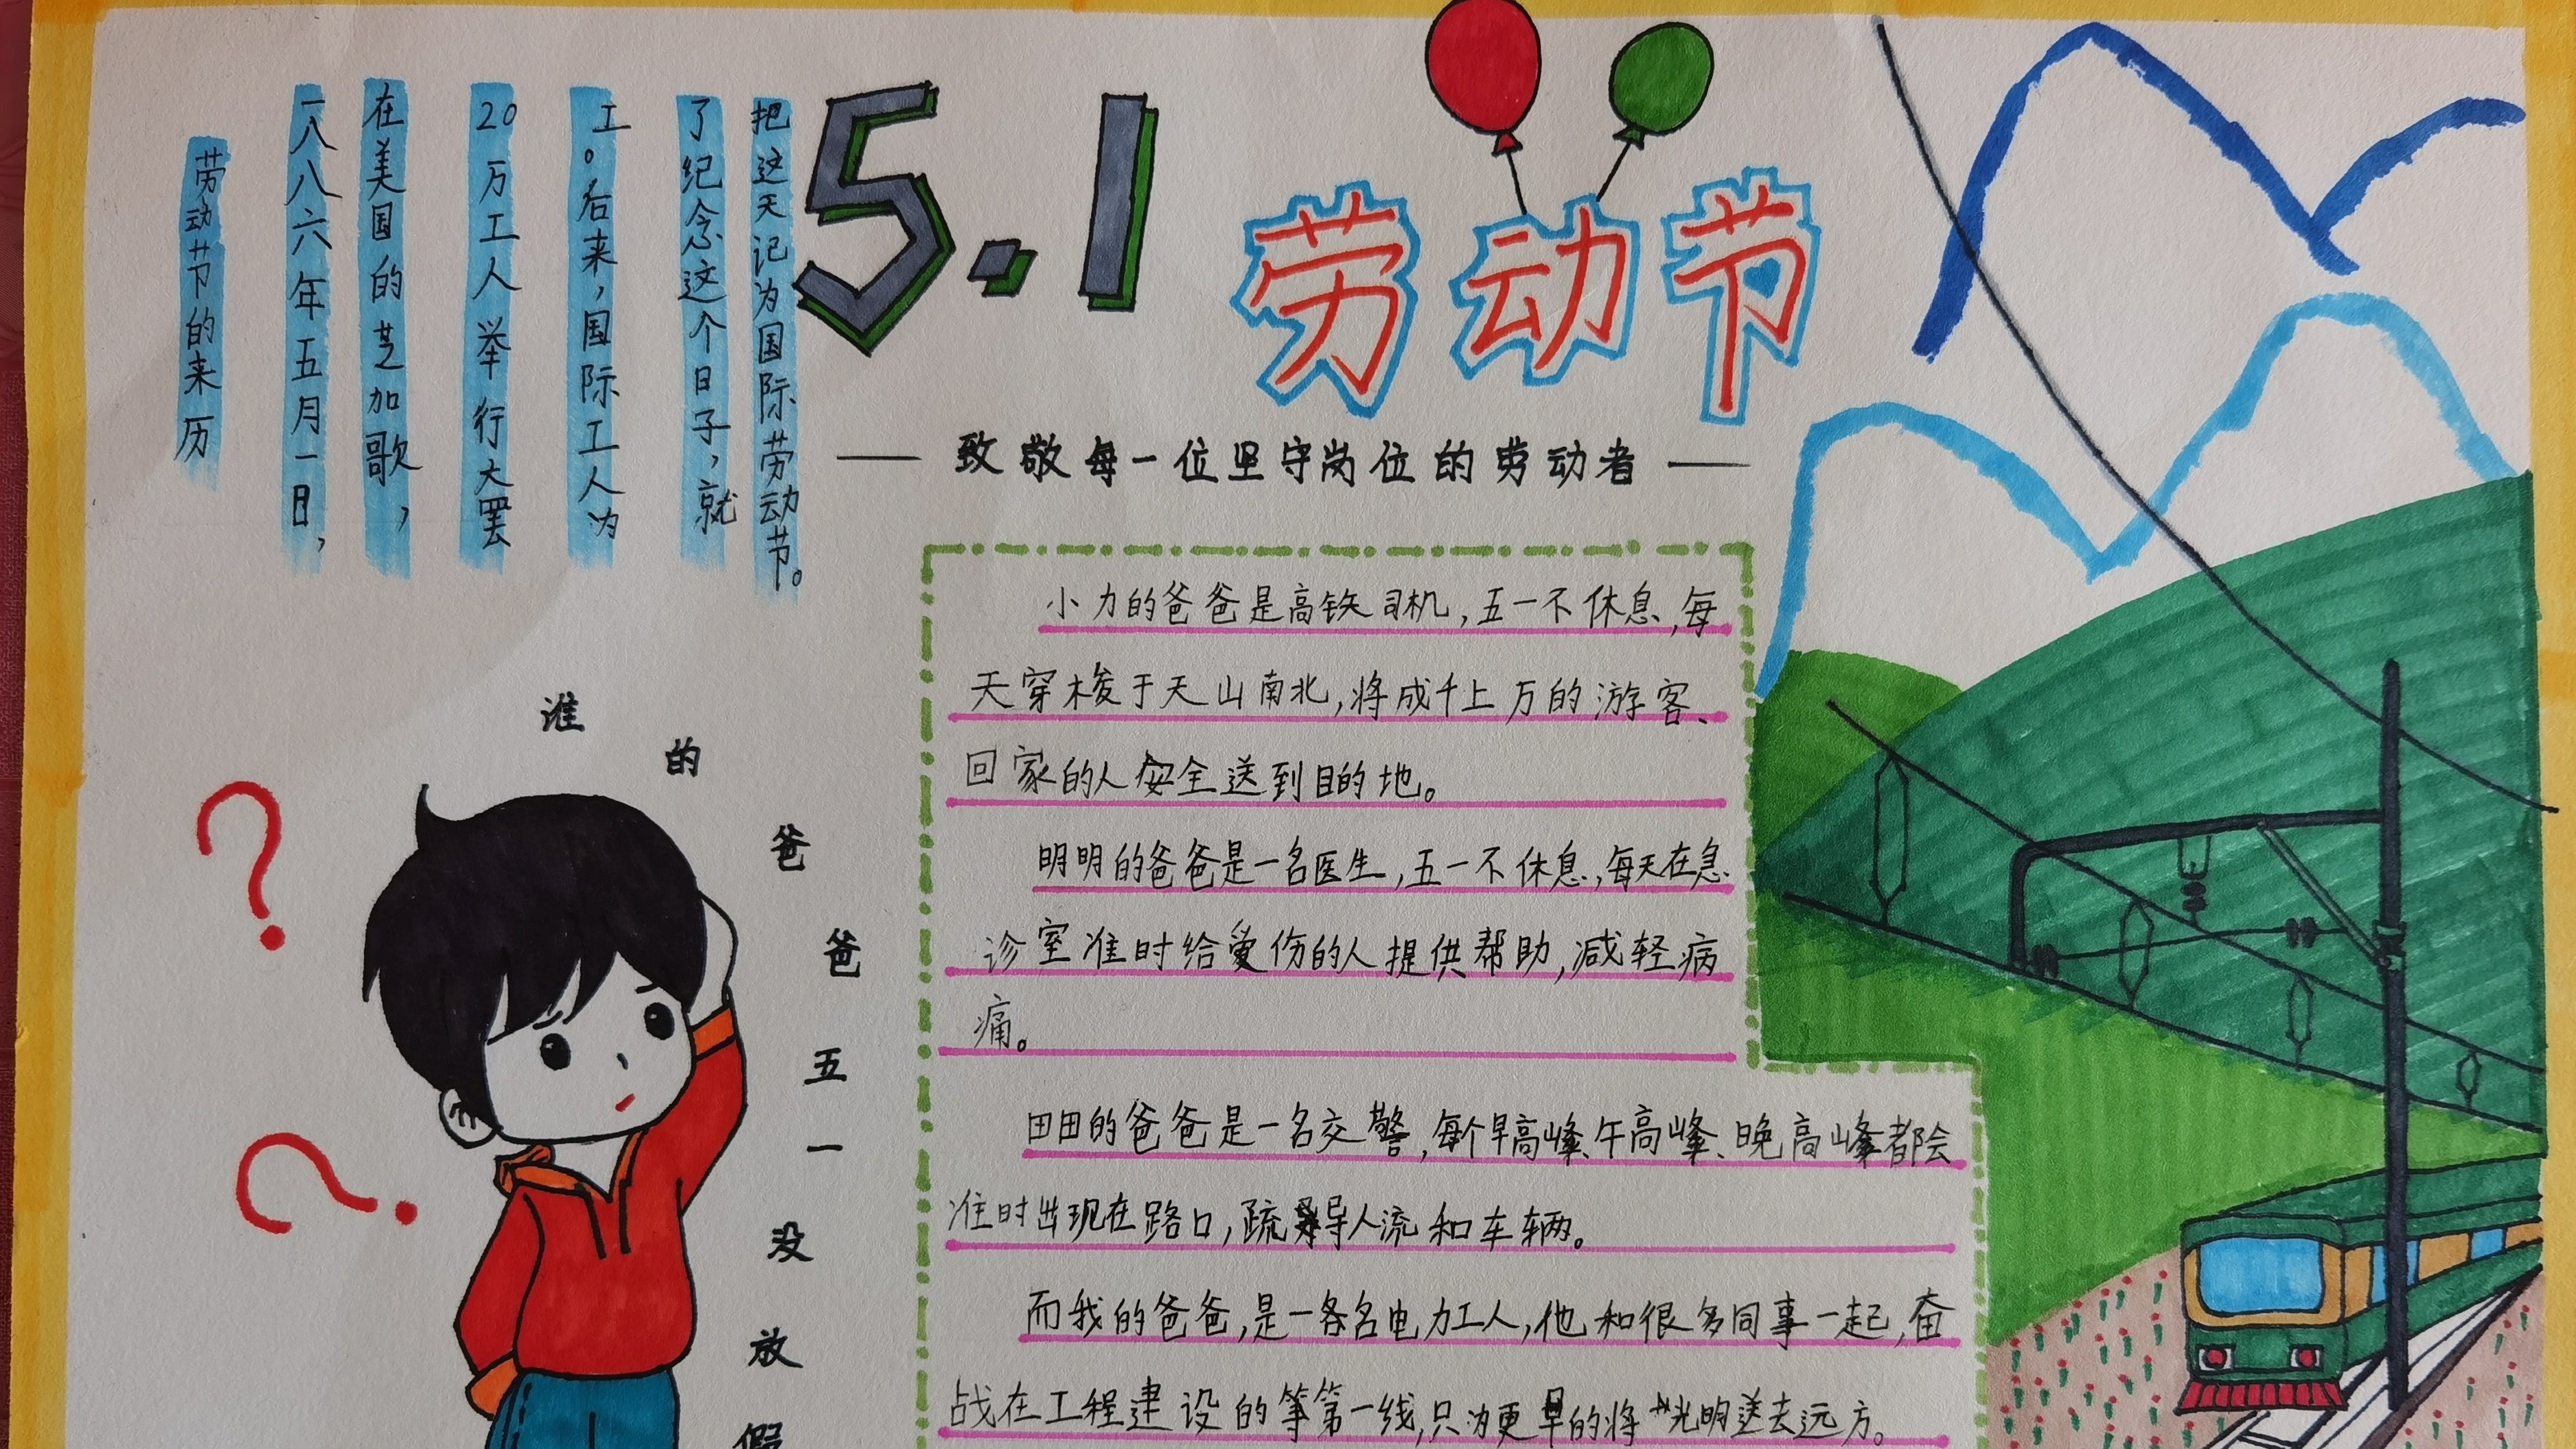 5.1
劳动节
致敬每一位坚守岗位的劳动者
劳动节的来历
一八八六年五月一日，
在美国的芝加歌，
20万工人举行大罢
工。后来，国际工人为
了纪念这个日子，就
把这天记为国际劳动节。
谁的爸爸五一没放假
小力的爸爸是高铁司机，五一不休息，每
天穿梭于天山南北，将成千上万的游客、
回家的人安全送到目的地。
明明的爸爸是一名医生，五一不休息，每天在急
诊室准时给受伤的人提供帮助，减轻病
痛。
田田的爸爸是一名交警，每个早高峰、午高峰、晚高峰都会
准时出现在路口，疏导人流和车辆。
而我的爸爸，是一名电力工人，他和很多同事一起，奋
战在工程建设的第一线，只为更早的将光明送去远方。